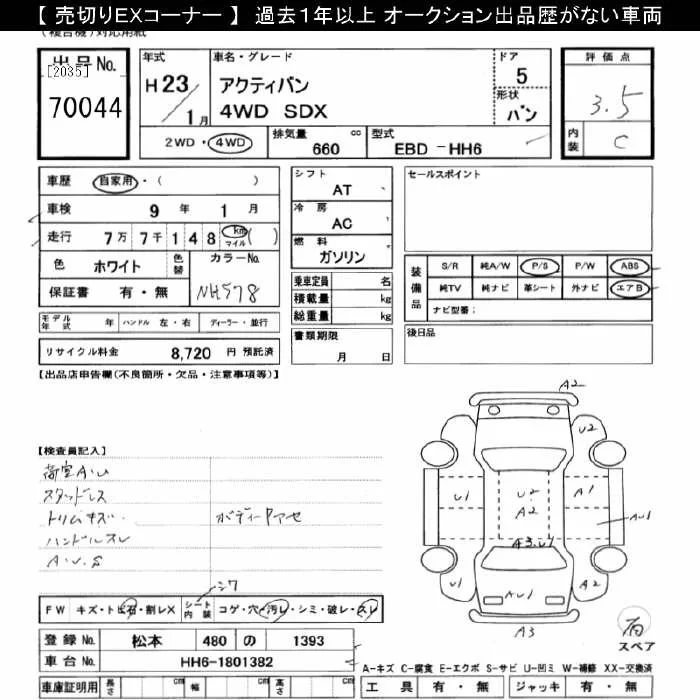 【 売切りEXコーナー 】 過去1年以上 オークション出品歴がない車両
(複合機)対応用紙
出品No.
[2035]
70044
年式
H 23/1月
車名・グレード
アクティバン
4WD SDX
ドア
5
形状
バン
評価点
3.5
内装
C
2WD・4WD
排気量 660 cc
型式 EBD -HH6
車歴 自家用・( )
車検 9 年 1 月
走行 7万 7千 1 4 8 km マイル ( )
色 ホワイト 色替
カラーNo. NH578
保証書 有・無
モデル年式 年 ハンドル 左・右 ディーラー・並行
リサイクル料金 8,720 円 預託済
シフト AT
冷房 AC
燃料 ガソリン
乗車定員 名
積載量 kg
総重量 kg
書類期限
月 日
セールスポイント
装備品
S/R 純A/W P/S P/W ABS
純TV 純ナビ 革シート 外ナビ エアB
ナビ型番:
後日品
【出品店申告欄(不良箇所・欠品・注意事項等)】
【検査員記入】
荷室A.U
スタッドレス
トリムキズ
ボディーヤケアセ
ハンドルスレ
A.U.S
シワ
FW キズ・ト飛石・割レX
シート内装 コゲ・穴・汚レ・シミ・破レ・スレ
登録No. 松本 480 の 1393
車台No. HH6-1801382
車庫証明用 長さ cm 幅 cm 高さ cm
A2
U2
U1
U2
A2
A1
AU1
A3.U1
U1
AU1
A2
A3
スペア
A-キズ C-腐食 E-エクボ S-サビ U-凹ミ W-補修 XX-交換済
工具 有・無 ジャッキ 有・無